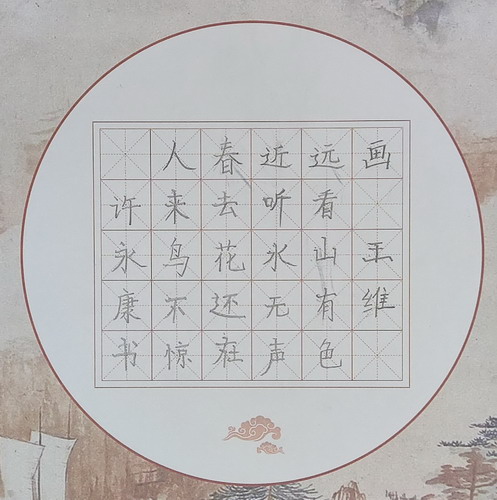 画 王维
远看山有色
近听水无声
春去花还在
人来鸟不惊
许永康书